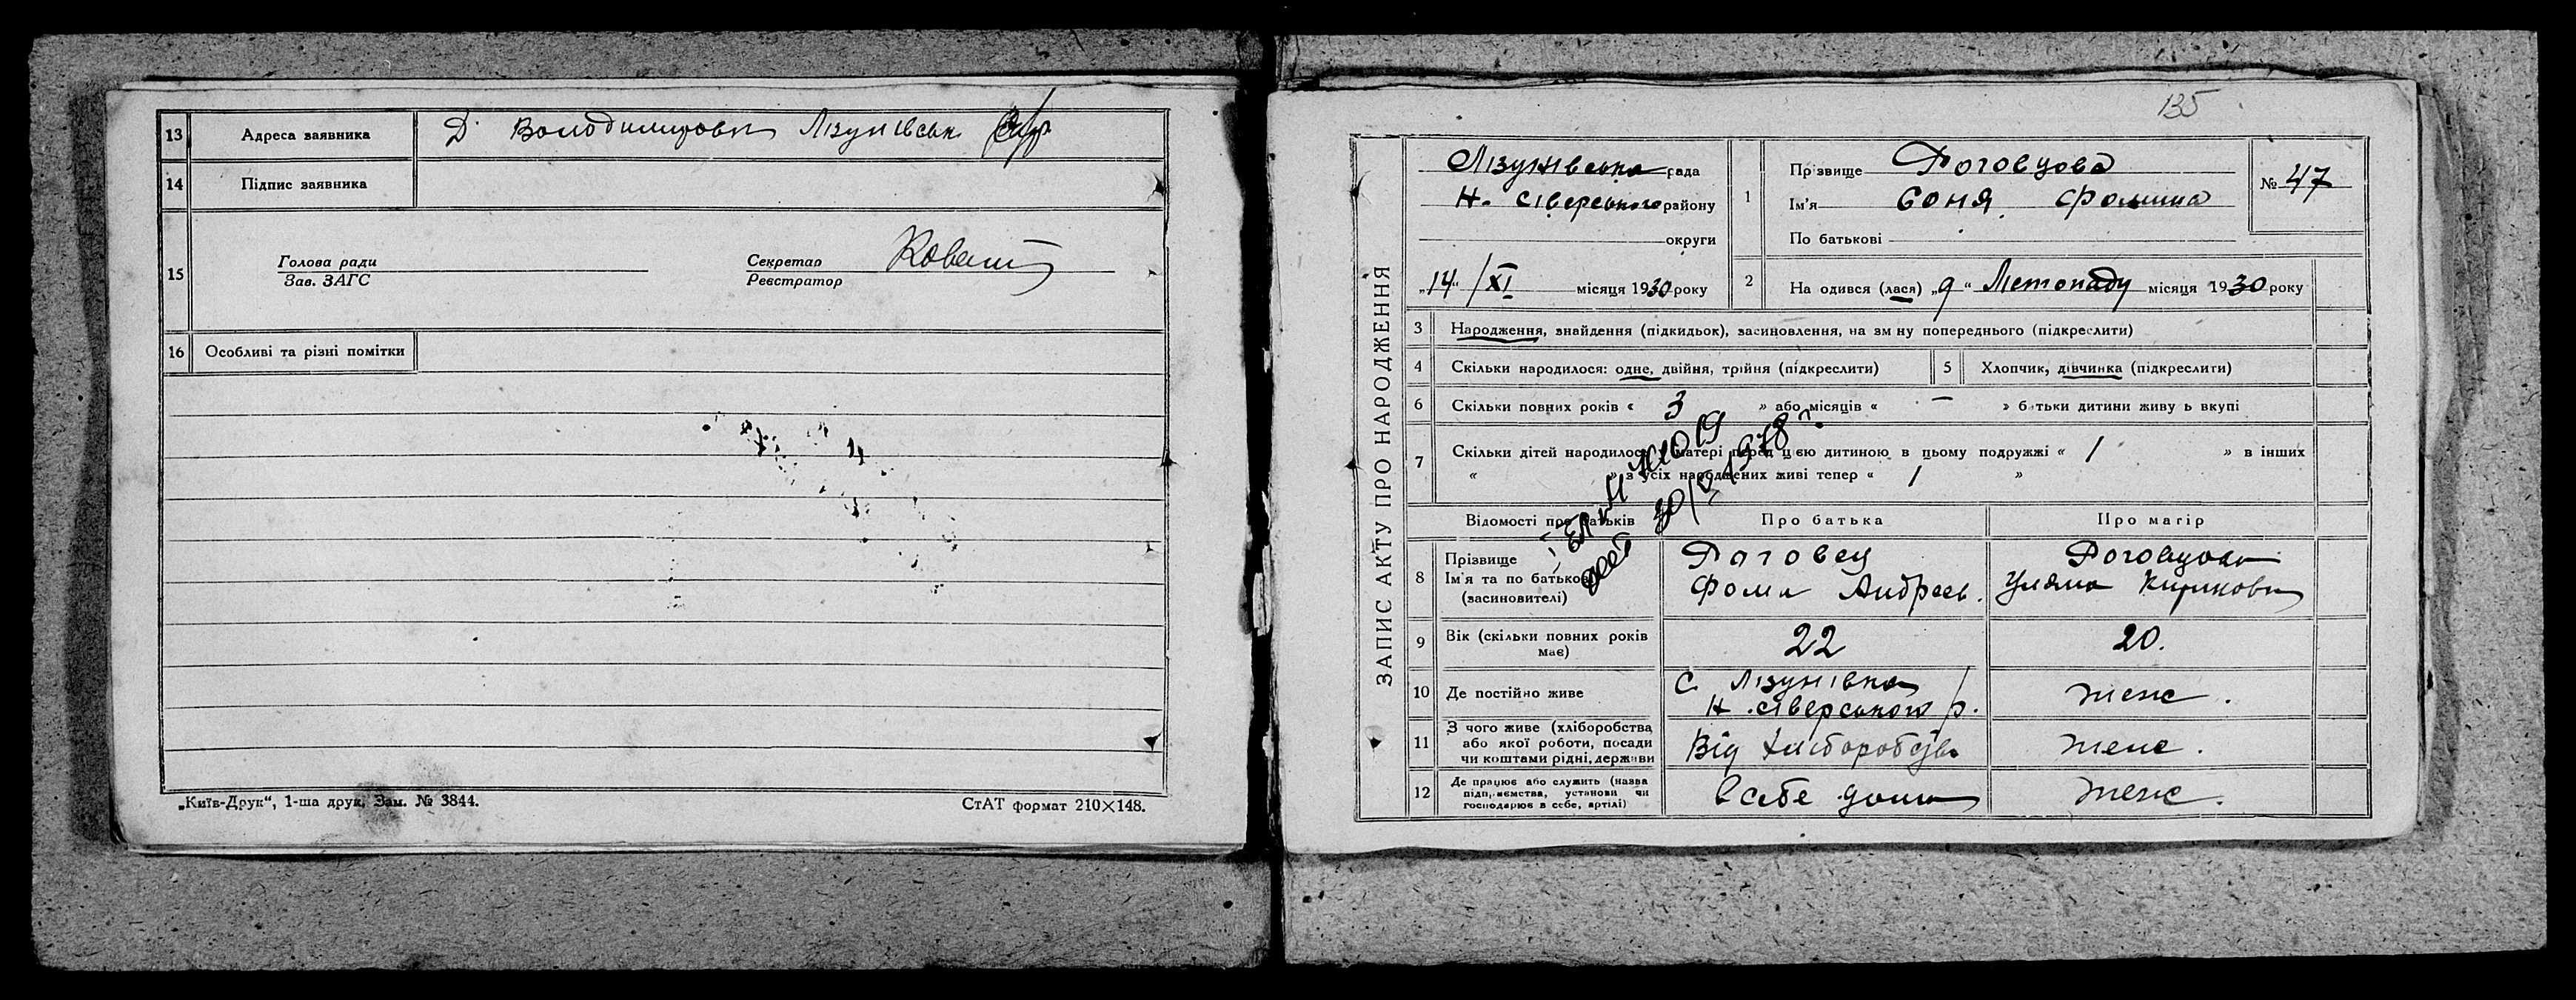 13 Адреса заявника Д. Володимировка Лізунівськ с/р
14 Підпис заявника
15 Голова ради
Зав. ЗАГС
Секретар
Реєстратор
16 Особливі та різні помітки
„Київ-Друк“, 1-ша друк. Зам. № 3844.
СтАТ формат 210×148.
135
ЗАПИС АКТУ ПРО НАРОДЖЕННЯ
Лізунівська рада
Н. Сіверського району
округи
„14“ / XI місяця 1930 року
1 Прізвище Роговцова
Ім'я Соня Фомина
По батькові
№ 47
2 На одився (лася) „9“ Лістопаду місяця 1930 року
3 Народження, знайдення (підкидьок), засиновлення, на зм ну попереднього (підкреслити)
4 Скільки народилося: одне, двійня, трійня (підкреслити)
5 Хлопчик, дівчинка (підкреслити)
6 Скільки повних років « 3 » або місяців « — » б тьки дитини живу ь вкупі
7 Скільки дітей народилось у матері перед цією дитиною в цьому подружжі « 1 » в інших
« » з усіх народжених живі тепер « 1 »
30/V 1978 г.
Відомості про батьків Про батька Про матір
8 Прізвище
Ім'я та по батькові
(засиновителі)
Роговец
Фома Андреев.
Роговцова
Уляна Кириковн
9 Вік (скільки повних років
має)
22
20.
10 Де постійно живе
С Лізунівка
Н. Сіверського р.
теж.
11 З чого живе (хліборобства,
або якої роботи, посади
чи коштами рідні, держави
Від хліборобства
теж.
12 Де працює або служить (назва
підприємства, установи чи
господарює в себе, артілі)
в себе дома
теж.